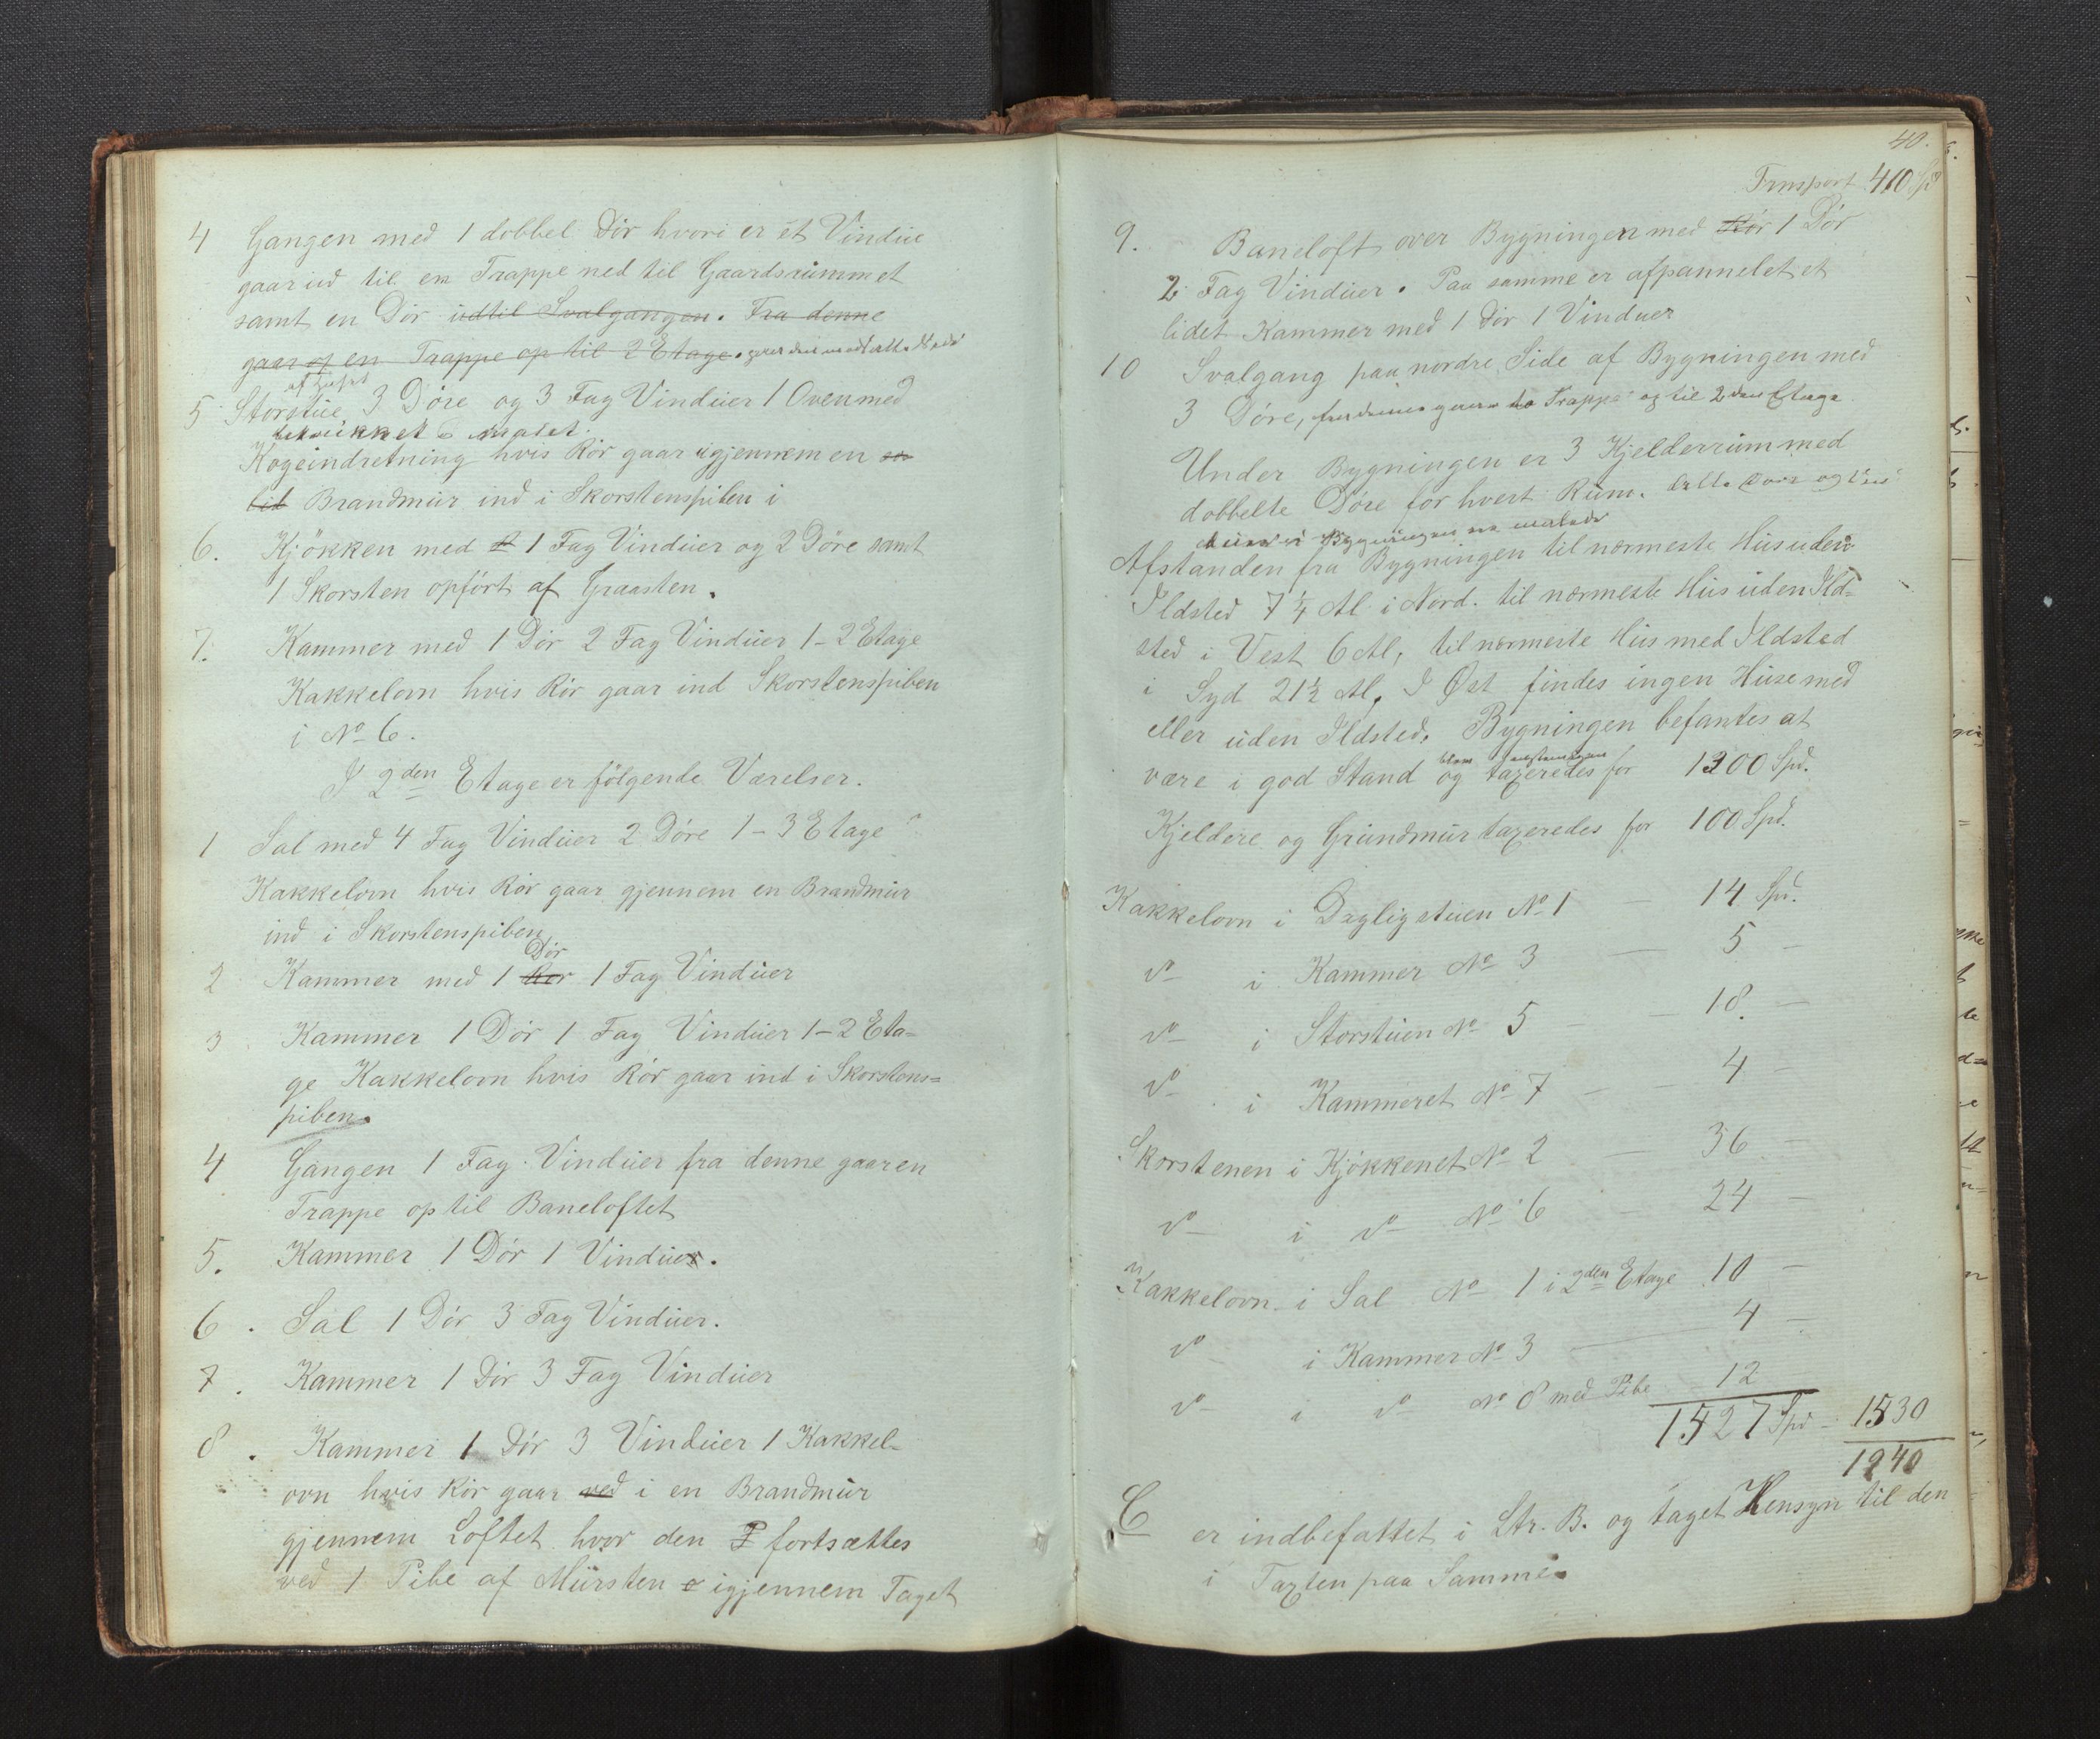 4 Gangen med 1 dobbel Dör hvori er et Vindue
gaar ud til en Trappe ned til Gaardsrummet
samt en Dör udtil Svalgangen. Fra denne
gaar og en Trappe op til 2 Etage.
5 Storstue 3 Döre og 3 Fag Vinduer 1 Oven med
betrukket o malet.
Kogeindretning hvis Rör gaar igjennem en en
lid Brandmur ind i Skorstenspiben i
6. Kjökken med 1 Fag Vinduer og 2 Döre samt
1 Skorsten opfört af Graasten.
7. Kammer med 1 Dör 2 Fag Vinduer 1-2 Etage
Kakkelovn hvis Rör gaar ind Skorstenspiben
i No 6.
I 2den Etage er fölgende Værelser.
1 Sal med 4 Fag Vinduer 2 Döre 1-3 Etage
Kakkelovn hvis Rör gaar gjennem en Brandmur
ind i Skorstenspiben
Dör
2 Kammer med 1 Rör 1 Fag Vinduer
3 Kammer 1 Dör 1 Fag Vinduer 1-2 Eta-
ge Kakkelovn hvis Rör gaar ind i Skorstens=
piben.
4 Gangen 1 Fag Vinduer fra denne gaar en
Trappe op til Baneloftet
5. Kammer 1 Dör 1 Vinduer.
6. Sal 1 Dör 3 Fag Vinduer.
7. Kammer 1 Dör 3 Fag Vinduer
8. Kammer 1 Dör 3 Vinduer 1 Kakkel-
ovn hvis Rör gaar ved i en Brandmur
gjennem Loftet hvor den P fortsættes
ved 1 Pibe af Mursten igjennem Taget
40.
Transport 410 Spd
9. Baneloft over Bygningen med Rör 1 Dör
2 Fag Vinduer. Paa samme er afpannelet et
lidet Kammer med 1 Dör 1 Vinduer
10 Svalgang paa nordre Side af Bygningen med
3 Döre, fra denne gaar to Trappe op til 2den Etage
Under Bygningen er 3 Kjelderrum med
dobbelte Döre for hvert Rum.
Bygningen malede
Afstanden fra Bygningen til nærmeste Hus uden
Ildsted 7 1/4 Al i Nord. til nærmeste Hus uden Ild=
sted i Vest 6 Al, til nærmeste Hus med Ildsted
i Syd 21 1/2 Al, I Øst findes ingen Huse med
eller uden Ildsted. Bygningen befantes at
være i god Stand og taxeredes for 1300 Spd.
Kjeldere og Grundmur taxeredes for 100 Spd.
Kakkelovn i Dagligstuen No 1 — 14 Spd.
do i Kammer No 3 — 5 —
do i Storstuen No 5 — 18. —
do i Kammeret No 7 — 4 —
Skorstenen i Kjökkenet No 2 — 36 —
do i do No 6 — 24 —
Kakkelovn i Sal No 1 i 2den Etage 10 —
do i Kammer No 3 — 4 —
do i do No 8 med Pibe — 12
1527 Spd — 1530
1940
C er indbefattet i Ltr. B. og taget Hensyn til den
i Taxten paa Samme.